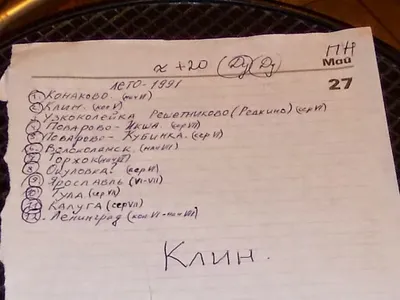 ПН
α +20
Май
27
ЛЕТО-1991
Конаково. (нач VI)
Клин. (кон V)
Узкоколейка Решетниково (Редкино) (сер VI)
Поварово - Икша. (сер VII)
Поварово - Кубинка. (сер VII)
Волоколамск. (нач VII)
Торжок
Окуловка. (сер VI)
Ярославль (VI-VII)
Тула (сер VII)
Калуга (сер VII)
Ленинград (кон VI - нач VII)
Клин.